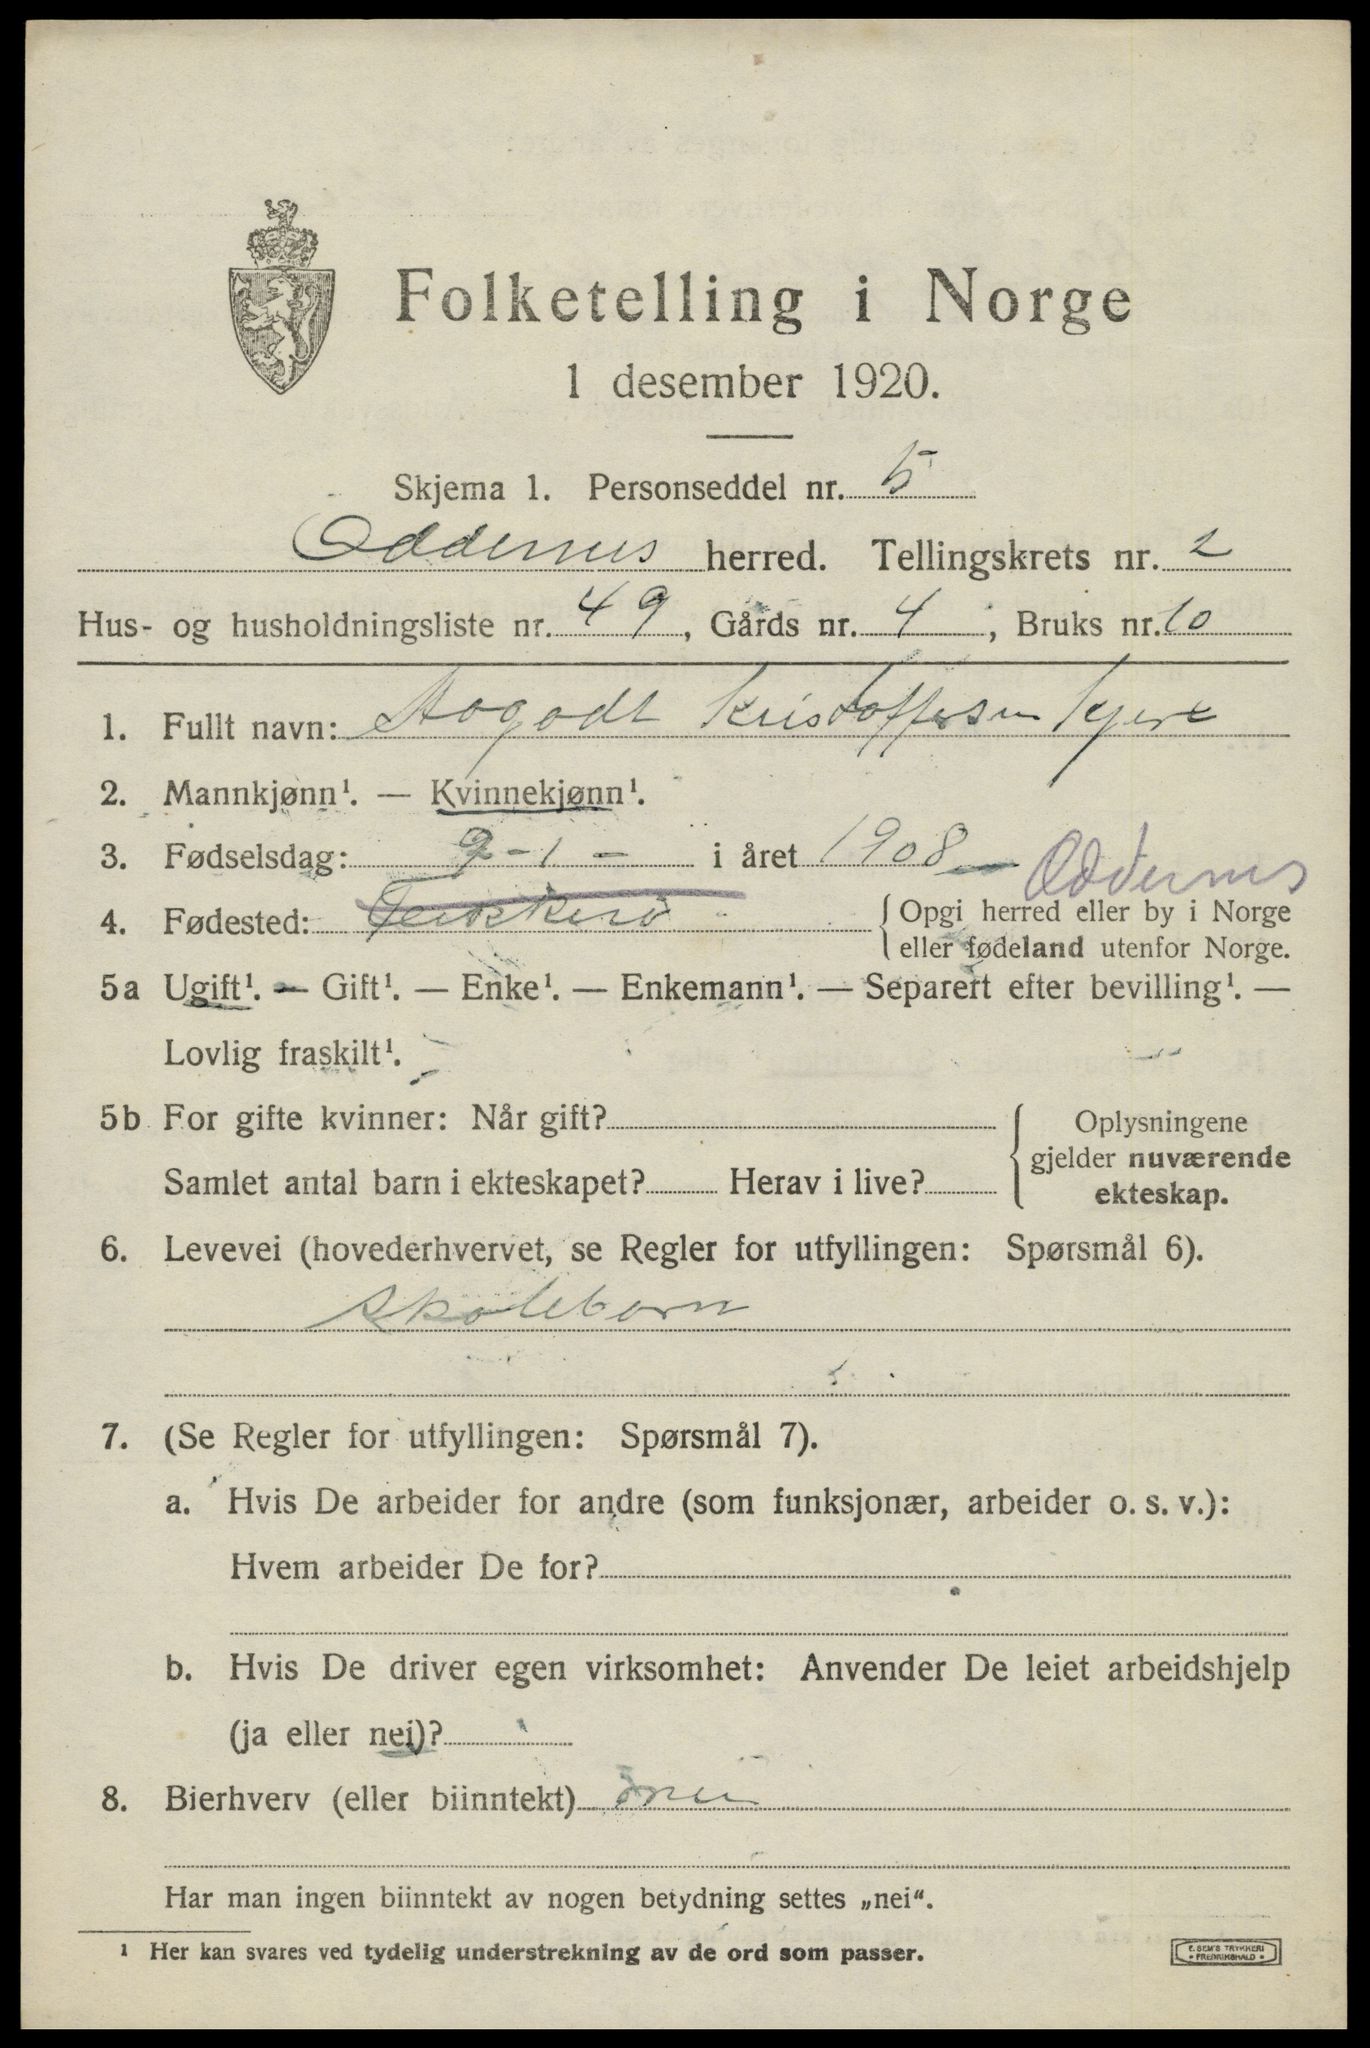 Folketelling i Norge
1 desember 1920.
Skjema 1. Personseddel nr. 5
Oddernes herred. Tellingskrets nr. 2
Hus- og husholdningsliste nr. 49, Gårds nr. 4, Bruks nr. 10
1. Fullt navn: Aogodt Kristoffersen Kjære
2. Mannkjønn¹. — Kvinnekjønn¹.
3. Fødselsdag: 9-1- i året 1908 -
Oddernes
4. Fødested: { Opgi herred eller by i Norge
eller fødeland utenfor Norge.
5a Ugift¹. — Gift¹. — Enke¹. — Enkemann¹. — Separert efter bevilling¹. —
Lovlig fraskilt¹.
5b For gifte kvinner: Når gift?
Samlet antal barn i ekteskapet? Herav i live?
{ Oplysningene
gjelder nuværende
ekteskap.
6. Levevei (hovederhvervet, se Regler for utfyllingen: Spørsmål 6).
skolebarn
7. (Se Regler for utfyllingen: Spørsmål 7).
a. Hvis De arbeider for andre (som funksjonær, arbeider o. s. v.):
Hvem arbeider De for?
b. Hvis De driver egen virksomhet: Anvender De leiet arbeidshjelp
(ja eller nei)?
8. Bierhverv (eller biinntekt) nei
Har man ingen biinntekt av nogen betydning settes „nei“.
¹ Her kan svares ved tydelig understrekning av de ord som passer.
E. SEM'S TRYKKERI
FREDRIKSHALD